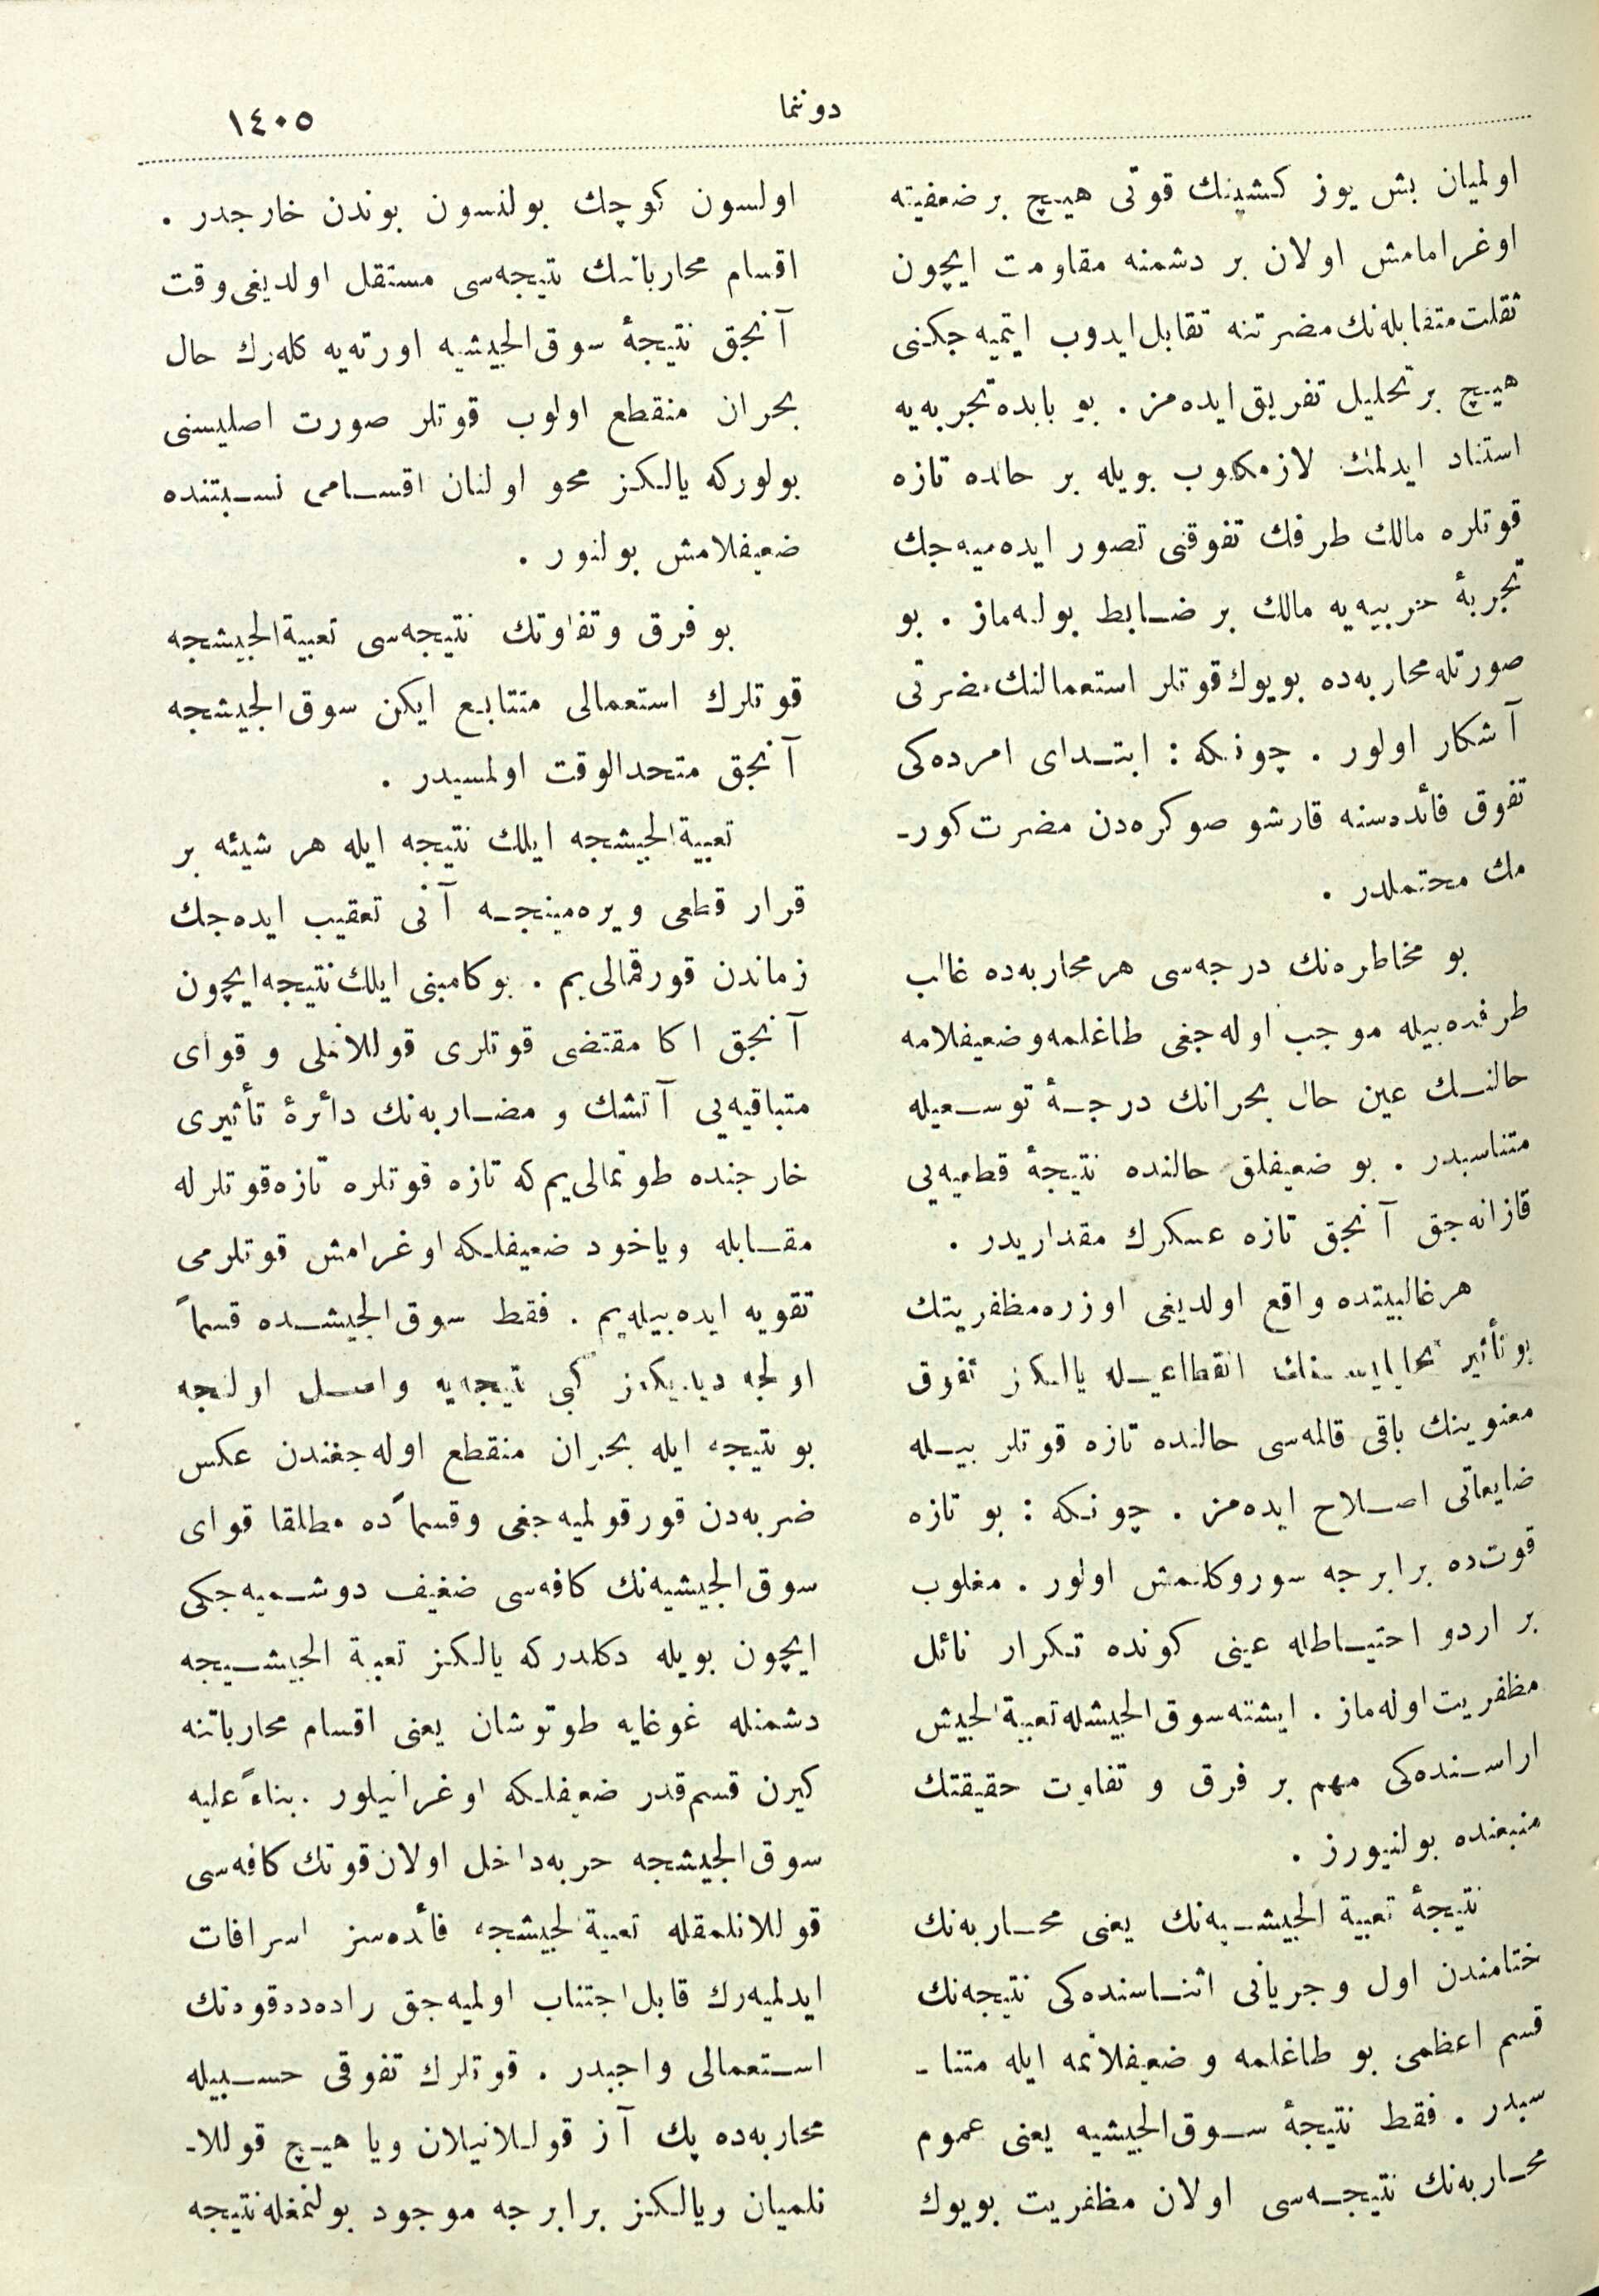 دوننما
١٤٠٥
اولميان بش يوز كشينك قوتى هيـچ بر ضعفيته
اوغرامامش اولان بر دشمنه مقاومت ايچون
ثقلت متقابله‌نك مضرتنه تقابل ايدوب ايتميه‌جكنى
هيـچ بر تحليل تفريق ايده‌مز . بو بابده تجربه‌يه
استناد ايدلمك لازمكلوب بويله بر حالده تازه
قوتلره مالك طرفك تفوقنى تصور ايده‌ميه‌جك
تجربۀ حربيه‌يه مالك بر ضـابط بوله‌ماز . بو
صورتله محاربه‌ده بويوك قوتلر استعمالنك مضرتى
آشكار اولور . چونكه : ابتـداى امرده‌كى
تفوق فائده‌سنه قارشو صوكره‌دن مضرت كور-
مك محتملدر .
بو مخاطره‌نك درجه‌سى هر محاربه‌ده غالب
طرفده بيله موجب اوله‌جغى طاغلمه و ضعيفلامه
حالنـك عين حال بحرانك درجـۀ توسـعيله
متناسبدر . بو ضعيفلق حالنده نتيجۀ قطعيه‌يى
قازانه‌جق آنجق تازه عسكرك مقداريدر .
هر غالبيتده واقع اولديغى اوزره مظفريتك
بو تأثير انقطاعيـله يالكز تفوق
معنوينك باقى قالمه‌سى حالنده تازه قوتلر بيـله
ضايعاتى اصـلاح ايده‌مز . چونكه : بو تازه
قوت‌ده برابرجه سوروكلنمش اولور . مغلوب
بر اردو احتيـاطله عينى كونده تكرار نائل
مظفريت اوله‌ماز . ايشته سوق‌الجيشله تعبية‌الجيش
اراسـنده‌كى مهم بر فرق و تفاوت حقيقتك
منبعنده بولنيورز .
نتيجۀ تعبية الجيشـيه‌نك يعنى محـاربه‌نك
ختامندن اول و جريانى اثنـاسنده‌كى نتيجه‌نك
قسم اعظمى بو طاغلمه و ضعيفلانمه ايله متنا -
سبدر . فقط نتيجۀ سـوق‌الجيشيه يعنى عموم
محـاربه‌نك نتيجـه‌سى اولان مظفريت بويوك
اولسون كوچك بولنسون بوندن خارجدر .
اقسام محارباتك نتيجه‌سى مستقل اولديغى وقت
آنجق نتيجۀ سوق‌الجيشيه اورته‌يه كله‌رك حال
بحران منقطع اولوب قوتلر صورت اصليسنى
بولوركه يالكز محو اولنان اقسـامى نسـبتنده
ضعيفلامش بولنور .
بو فرق و تفاوتك نتيجه‌سى تعبية‌الجيشجه
قوتلرك استعمالى متتابع ايكن سوق‌الجيشجه
آنجق متحدالوقت اولمسيدر .
تعبية‌الجيشجه ايلك نتيجه ايله هر شيئه بر
قرار قطعى ويره‌مينجـه آنى تعقيب ايده‌جك
زماندن قورقمالى‌يم . بوكا مبنى ايلك نتيجه ايچون
آنجق اكا مقتضى قوتلرى قوللانملى و قواى
متباقيه‌يى آتشك و مضـاربه‌نك دائرۀ تأثيرى
خارجنده طوتمالى‌يم كه تازه قوتلره تازه قوتلرله
مقـابله وياخود ضعيفلكه اوغرامش قوتلرمى
تقويه ايده‌بيله‌يم . فقط سوق‌الجيشـده قسماً
اولجه ديديكمز كبى نتيجه‌يه واصـل اولنجه
بو نتيجه ايله بحران منقطع اوله‌جغندن عكس
ضربه‌دن قورقولميه‌جغى و قسماً ده مطلقا قواى
سوق‌الجيشيه‌نك كافه‌سى ضعيف دوشـميه‌جكى
ايچون بويله دكلدركه يالكز تعبية الجيشـيجه
دشمنله غوغايه طوتوشان يعنى اقسام محارباتنه
كيرن قسم قدر ضعيفلكه اوغرانيلور . بناءً عليه
سوق‌الجيشجه حربه داخل اولان قوتك كافه‌سى
قوللانلمقله تعبية‌لجيشجه فائده‌سز اسرافات
ايدلميه‌رك قابل اجتناب اولميه‌جق راده‌ده قوه‌نك
اسـتعمالى واجبدر . قوتلرك تفوقى حسـبيله
محاربه‌ده پك آز قوللانيلان ويا هيـچ قوللا-
نلميان ويالكز برابرجه موجود بولنمغله نتيجه